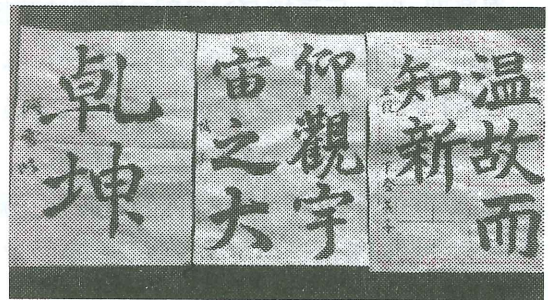 温故而
知新
仰觀宇
宙之大
乹坤